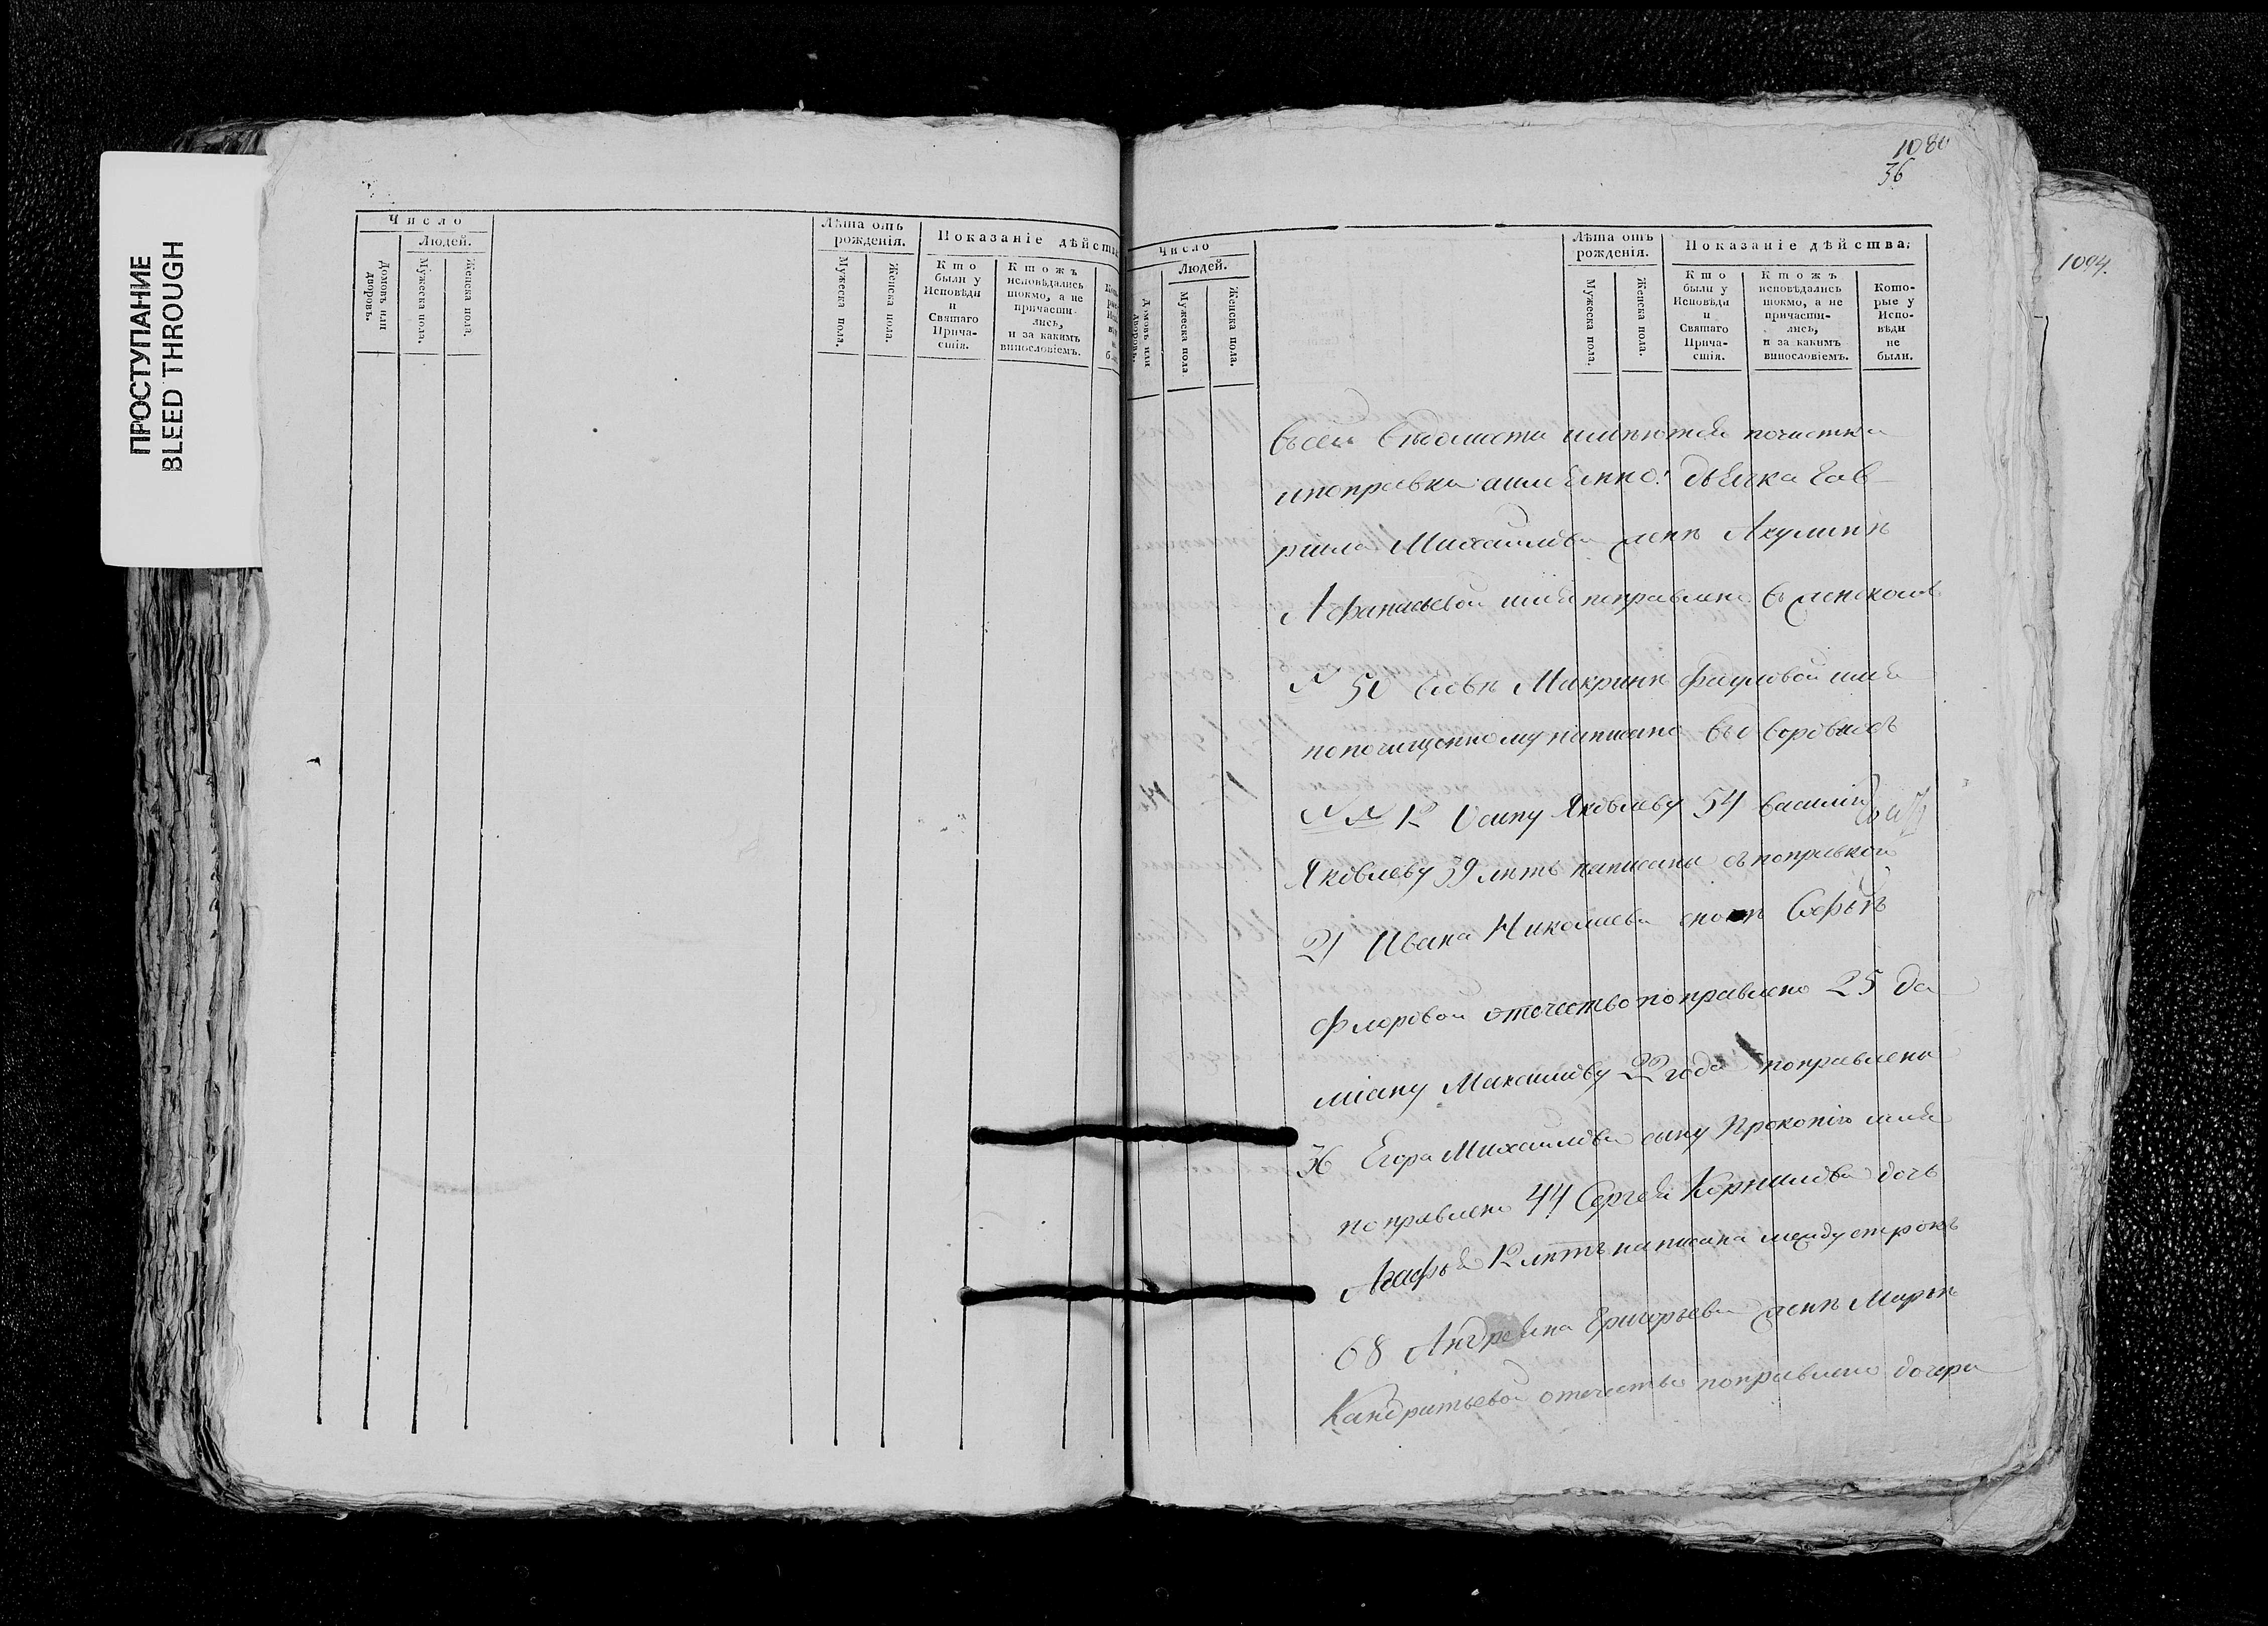 ПРОСТУПАНИЕ
BLEED THROUGH
Число
Людей.
Домовъ или дворовъ.
Мужеска пола.
Женска пола.
Лѣта отъ рожденія.
Мужеска пола.
Женска пола.
Показаніе дѣйства
Кто были у Исповѣди и Святаго Прича-стія.
Ктожъ исповѣдались токмо, а не причасти-лись, и за какимъ винословіемъ.
1080
36
1094.
Число
Людей.
Домовъ или дворовъ.
Мужеска пола
Женска пола.
Лѣта отъ рожденія.
Мужеска пола.
Женска пола.
Показаніе дѣйства:
Кто были у Исповѣди и Святаго Прича-стія.
Ктожъ исповѣдались токмо, а не причасти-лись, и за какимъ винословіемъ.
Кото-рые у Испо-вѣди не были.
Въсей вѣдомости имѣются почистки
ипоправки аимянно: дьячка Гав
риила Михаилова женѣ Акулинѣ
Афанасьевой имя поправлено въ женскомъ
№ 50 вдовѣ Макринѣ имя
попочищенному написано
№ № 12 Осипу Яковлеву 54 Василию
Яковлеву 39 лѣтъ написаны съ поправкой
21 Ивана Николаева снохѣ Софьѣ
Флоровой отечество поправлено 25 Да
міану Максимову 22 года поправлено
36 Егора Михаилова сыну Прокопію имя
поправлено 44 Сергея Корнилова дочь
Агафья 12 лѣтъ написана между строкъ
68 Андреяна Григорьева женѣ Марьѣ
Кандратьевой отечество поправлено дочери